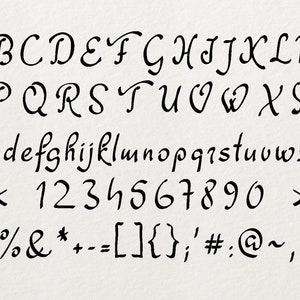 BCDEFGHIJKL
PQRSTUVWXS
defghijklmnopqrstuvw
< 1234567890 >
%&*+-=[]{};'#:@~,